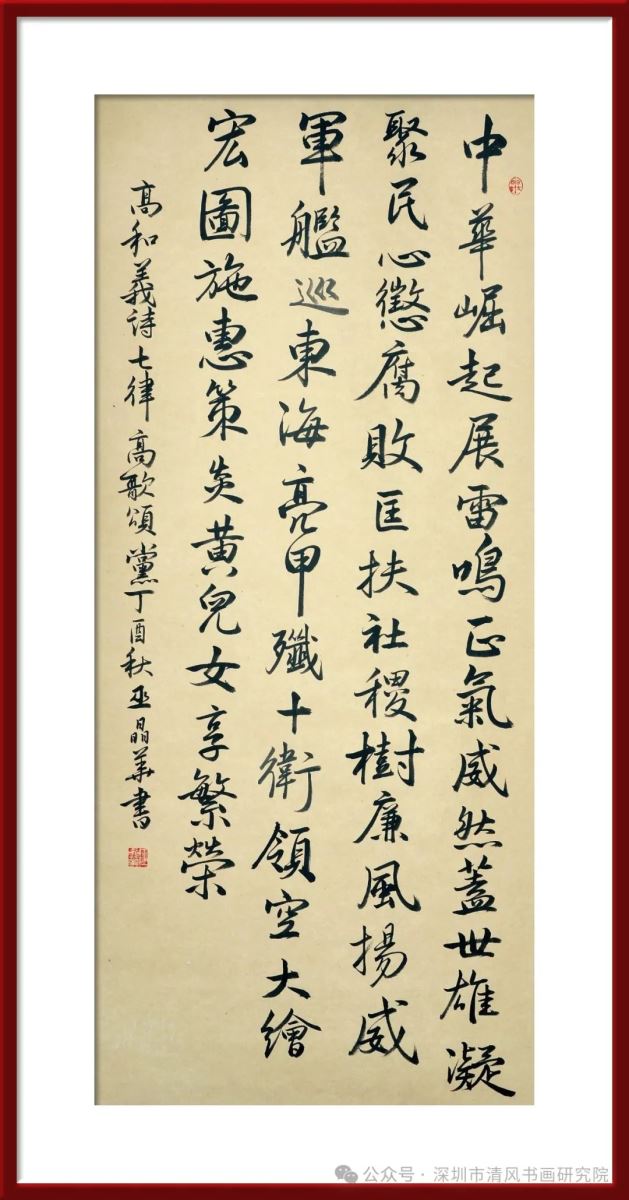 中華崛起展雷鳴正氣威然蓋世雄凝
聚民心懲腐敗匡扶社稷樹廉風揚威
軍艦巡東海亮甲殲十衛領空大繪
宏圖施惠策炎黃兒女享繁榮
高和義詩七律高歌頌黨丁酉秋巫晶華書
公众号·深圳市清风书画研究院